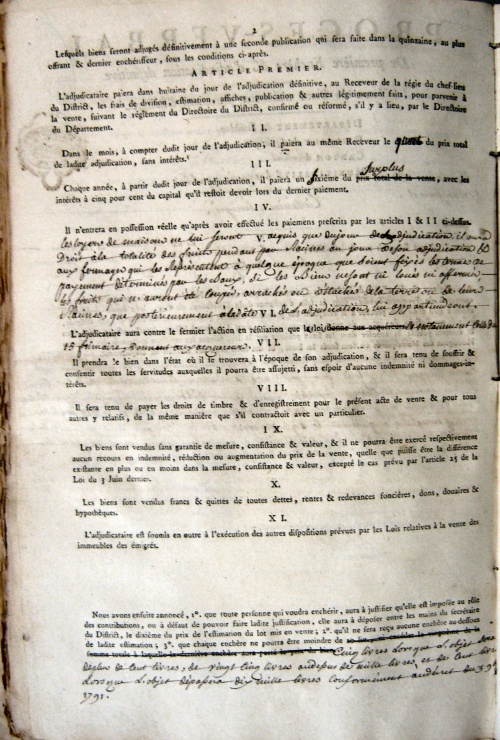 2
Lesquels biens seront adjugés définitivement à une seconde publication qui sera faite dans la quinzaine, au plus
offrant & dernier enchérisseur, sous les conditions ci-après.
ARTICLE PREMIER.
L'adjudicataire paiera dans huitaine du jour de l'adjudication définitive, au Receveur de la régie du chef-lieu
du District, les frais de division, estimation, affiches, publication & autres légitimement faits, pour parvenir à
la vente, suivant le règlement du Directoire du District, confirmé ou réformé, s'il y a lieu, par le Directoire
du Département.
II.
Dans le mois, à compter dudit jour de l'adjudication, il paiera au même Receveur le quart du prix total
de ladite adjudication, sans intérêts.
III.
surplus
Chaque année, à partir dudit jour de l'adjudication, il paiera un sixième du prix total de la vente, avec les
intérêts à cinq pour cent du capital qu'il restoit devoir lors du dernier paiement.
IV.
Il n'entrera en possession réelle qu'après avoir effectué les paiemens prescrits par les articles I & II ci-dessus.
les loyers de maison ne lui seront acquis que du jour de l'adjudication il aura
V.
droit à la totalité des fruits pendans par racines au jour de son adjudication &
aux fermages qui les représentent à quelque époque que soient fixés les termes de
payement déterminés par les baux, si les biens ne sont ni loués ni affermés
les fruits qui n'auront été coupés, arrachés ou détachés de la terre ou de leurs
racines, que postérieurement à la date de l'adjudication, lui appartiendront.
VI.
L'adjudicataire aura contre le fermier l'action en résiliation que la loi donne aux acquéreurs, & notamment celle du
15 frimaire, donnent aux acquéreurs.
VII.
Il prendra le bien dans l'état où il se trouvera à l'époque de son adjudication, & il sera tenu de souffrir &
consentir toutes les servitudes auxquelles il pourra être assujetti, sans espoir d'aucune indemnité ni dommages-in-
térêts.
VIII.
Il sera tenu de payer les droits de timbre & d'enregistrement pour le présent acte de vente & pour tous
autres y relatifs, de la même manière que s'il contractoit avec un particulier.
IX.
Les biens sont vendus sans garantie de mesure, consistance & valeur, & il ne pourra être exercé respectivement
aucun recours en indemnité, réduction ou augmentation du prix de la vente, quelle que puisse être la différence
existante en plus ou en moins dans la mesure, consistance & valeur, excepté le cas prévu par l'article 25 de la
Loi du 3 Juin dernier.
X.
Les biens sont vendus francs & quittes de toutes dettes, rentes & redevances foncières, dons, douaires &
hypothèques.
XI.
L'adjudicataire est soumis en outre à l'exécution des autres dispositions prévues par les Lois relatives à la vente des
immeubles des émigrés.
Nous avons ensuite annoncé, 1°. que toute personne qui voudra enchérir, aura à justifier qu'elle est imposée au rôle
des contributions, ou à défaut de pouvoir faire ladite justification, elle aura à déposer entre les mains du secrétaire
du District, le dixième du prix de l'estimation du lot mis en vente ; 2°. qu'il ne sera reçu aucune enchère au-dessous
de ladite estimation ; 3°. que chaque enchère ne pourra être moindre de
somme totale à laquelle la dernière enchère aura porté le prix de la vente Cinq livres lorsque l'objet sera
de cent livres, de vingt cinq livres au dessus de mille livres, et de cent livres
lorsque l'objet dépassera dix mille livres conformément au décret du 3 9bre
1791.